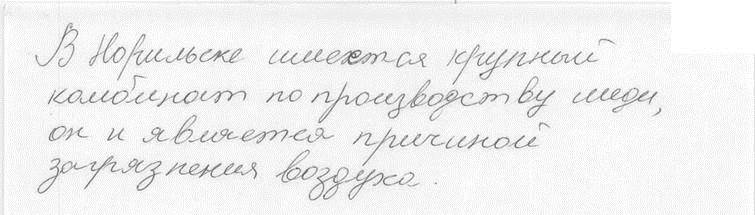 В Норильске имеется крупный
комбинат по производству меди,
он и является причиной
загрязнения воздуха.